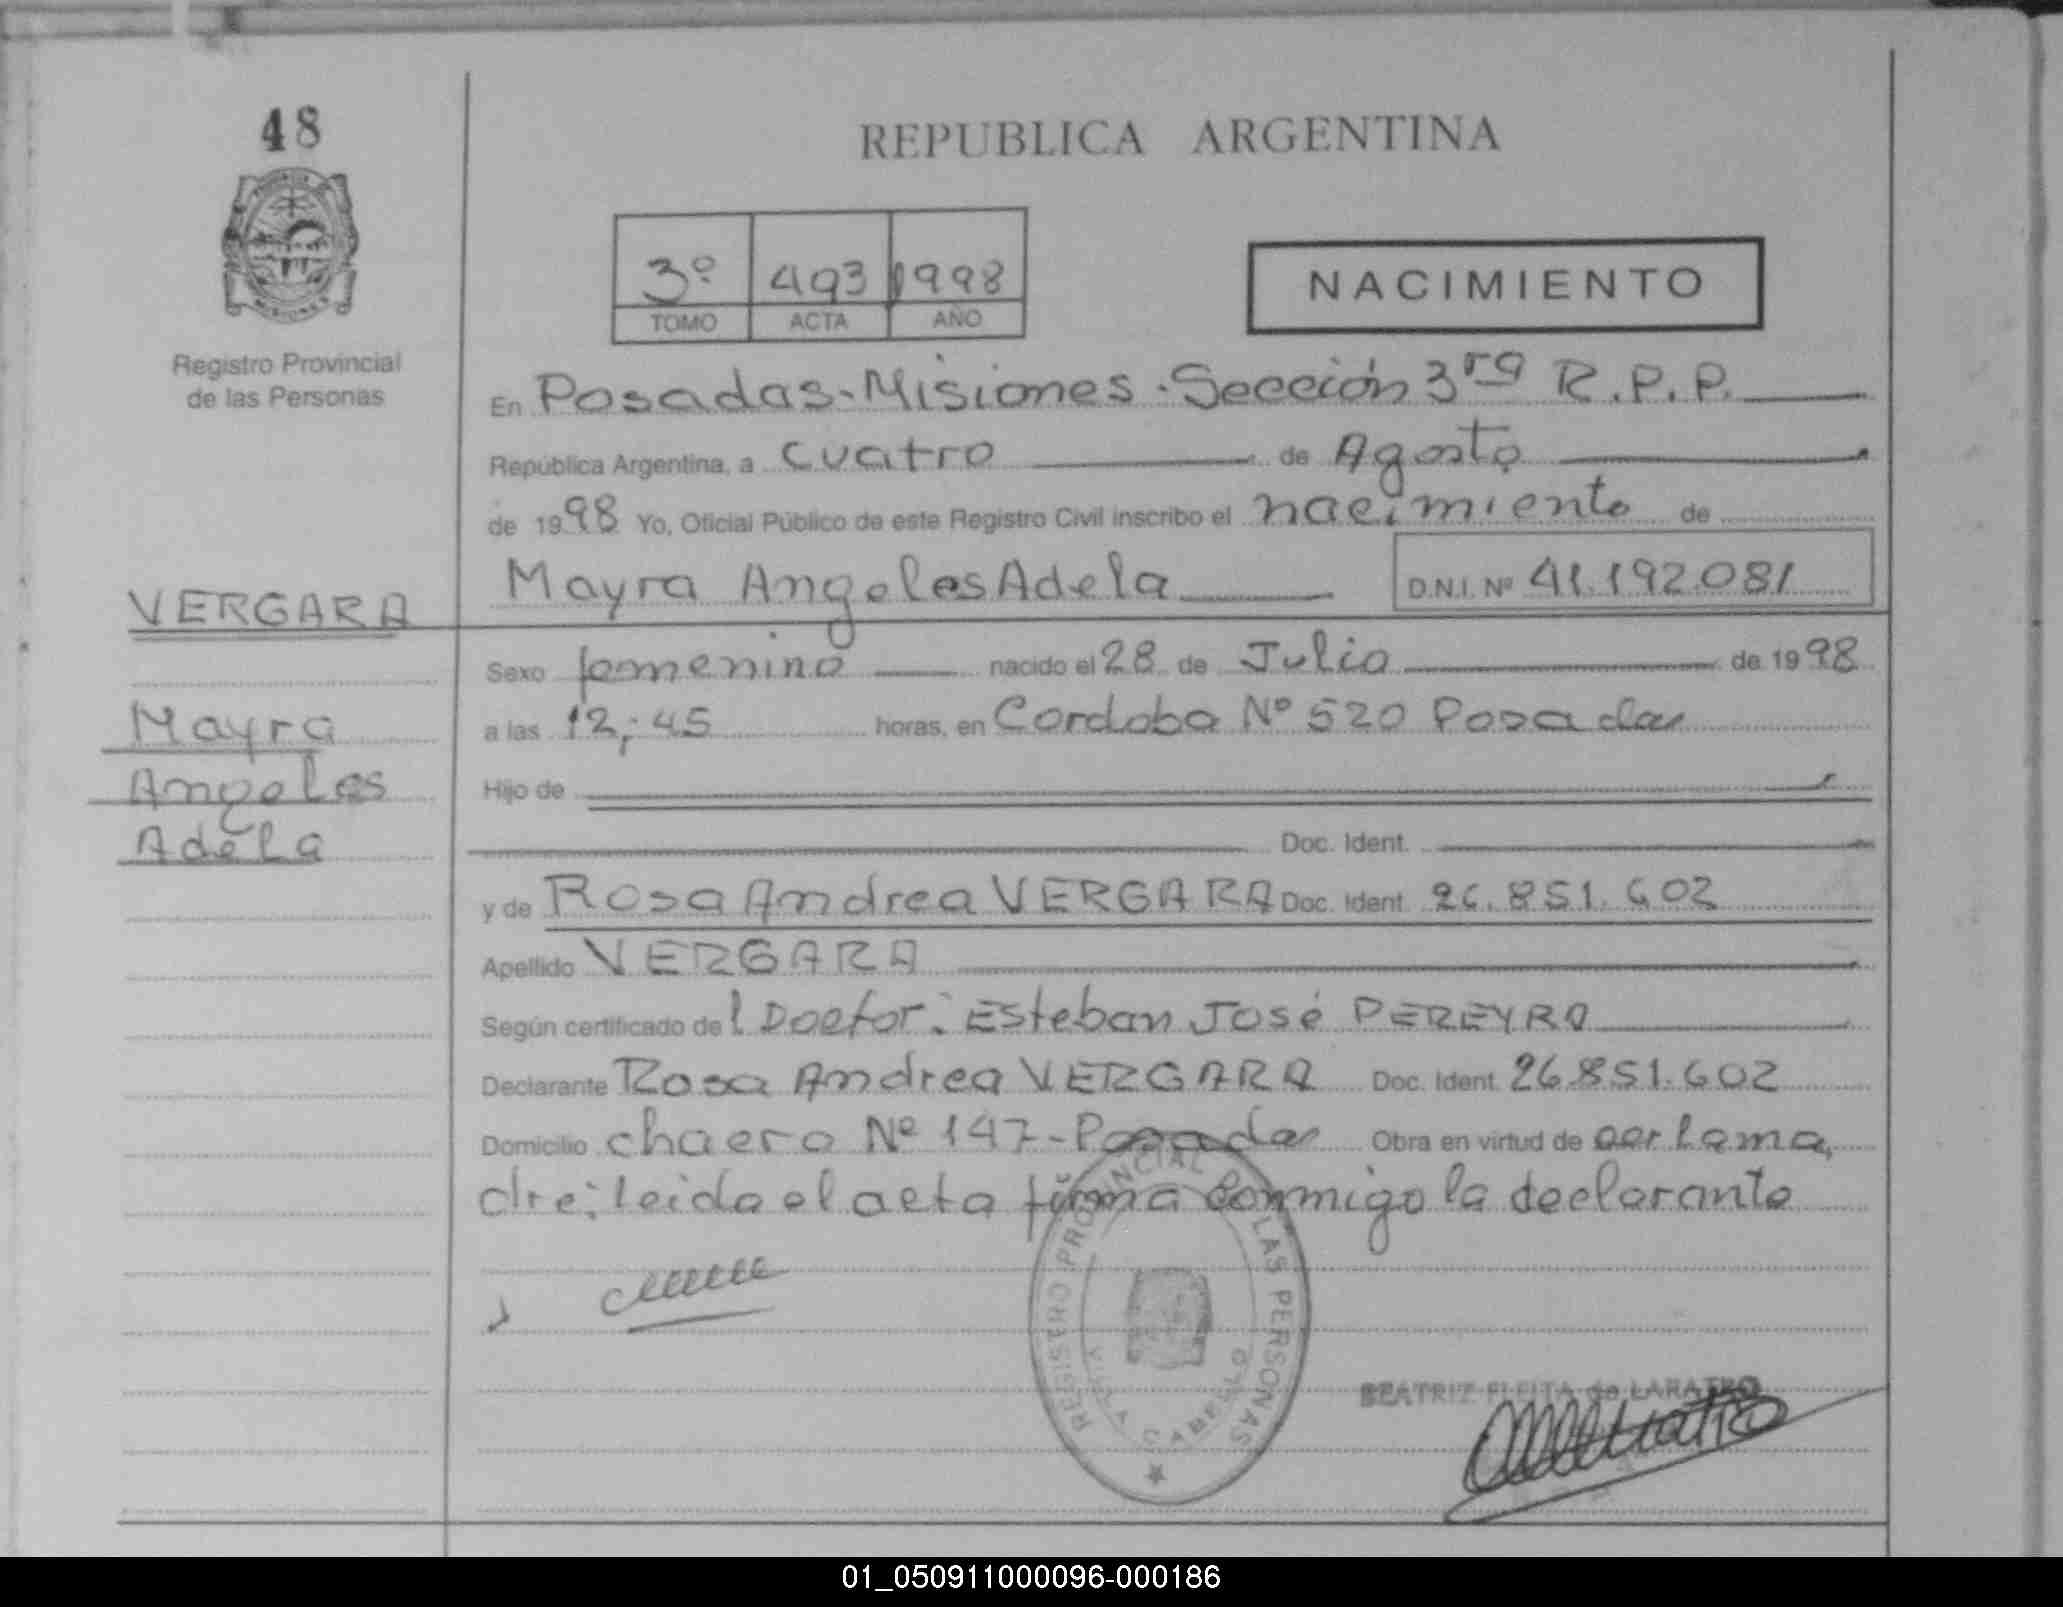 48
REPUBLICA ARGENTINA
3º 493 1998
TOMO ACTA AÑO
NACIMIENTO
Registro Provincial
de las Personas
En Posadas-Misiones-Sección 3ra R.P.P.
República Argentina, a cuatro de Agosto
de 1998 Yo, Oficial Público de este Registro Civil inscribo el nacimiento de
Mayra Angeles Adela D.N.I. Nº 41.192.081
VERGARA
Mayra
Angeles
Adela
Sexo femenino nacido el 28 de Julio de 1998
a las 12;45 horas, en Cordoba Nº 520 Posadas
Hijo de
Doc. Ident.
y de Rosa Andrea VERGARA Doc. Ident. 26.851.602
Apellido VERGARA
Según certificado del Doctor: Esteban José PEREYRA
Declarante Rosa Andrea VERGARA Doc. Ident. 26.851.602
Domicilio chacra Nº 147-Posadas Obra en virtud de ser la ma,
dre; leida el acta firma conmigo la declarante
REGISTRO PROVINCIAL DE LAS PERSONAS
VILLA CABELLO
BEATRIZ FLEITA de LARATRO
01_050911000096-000186